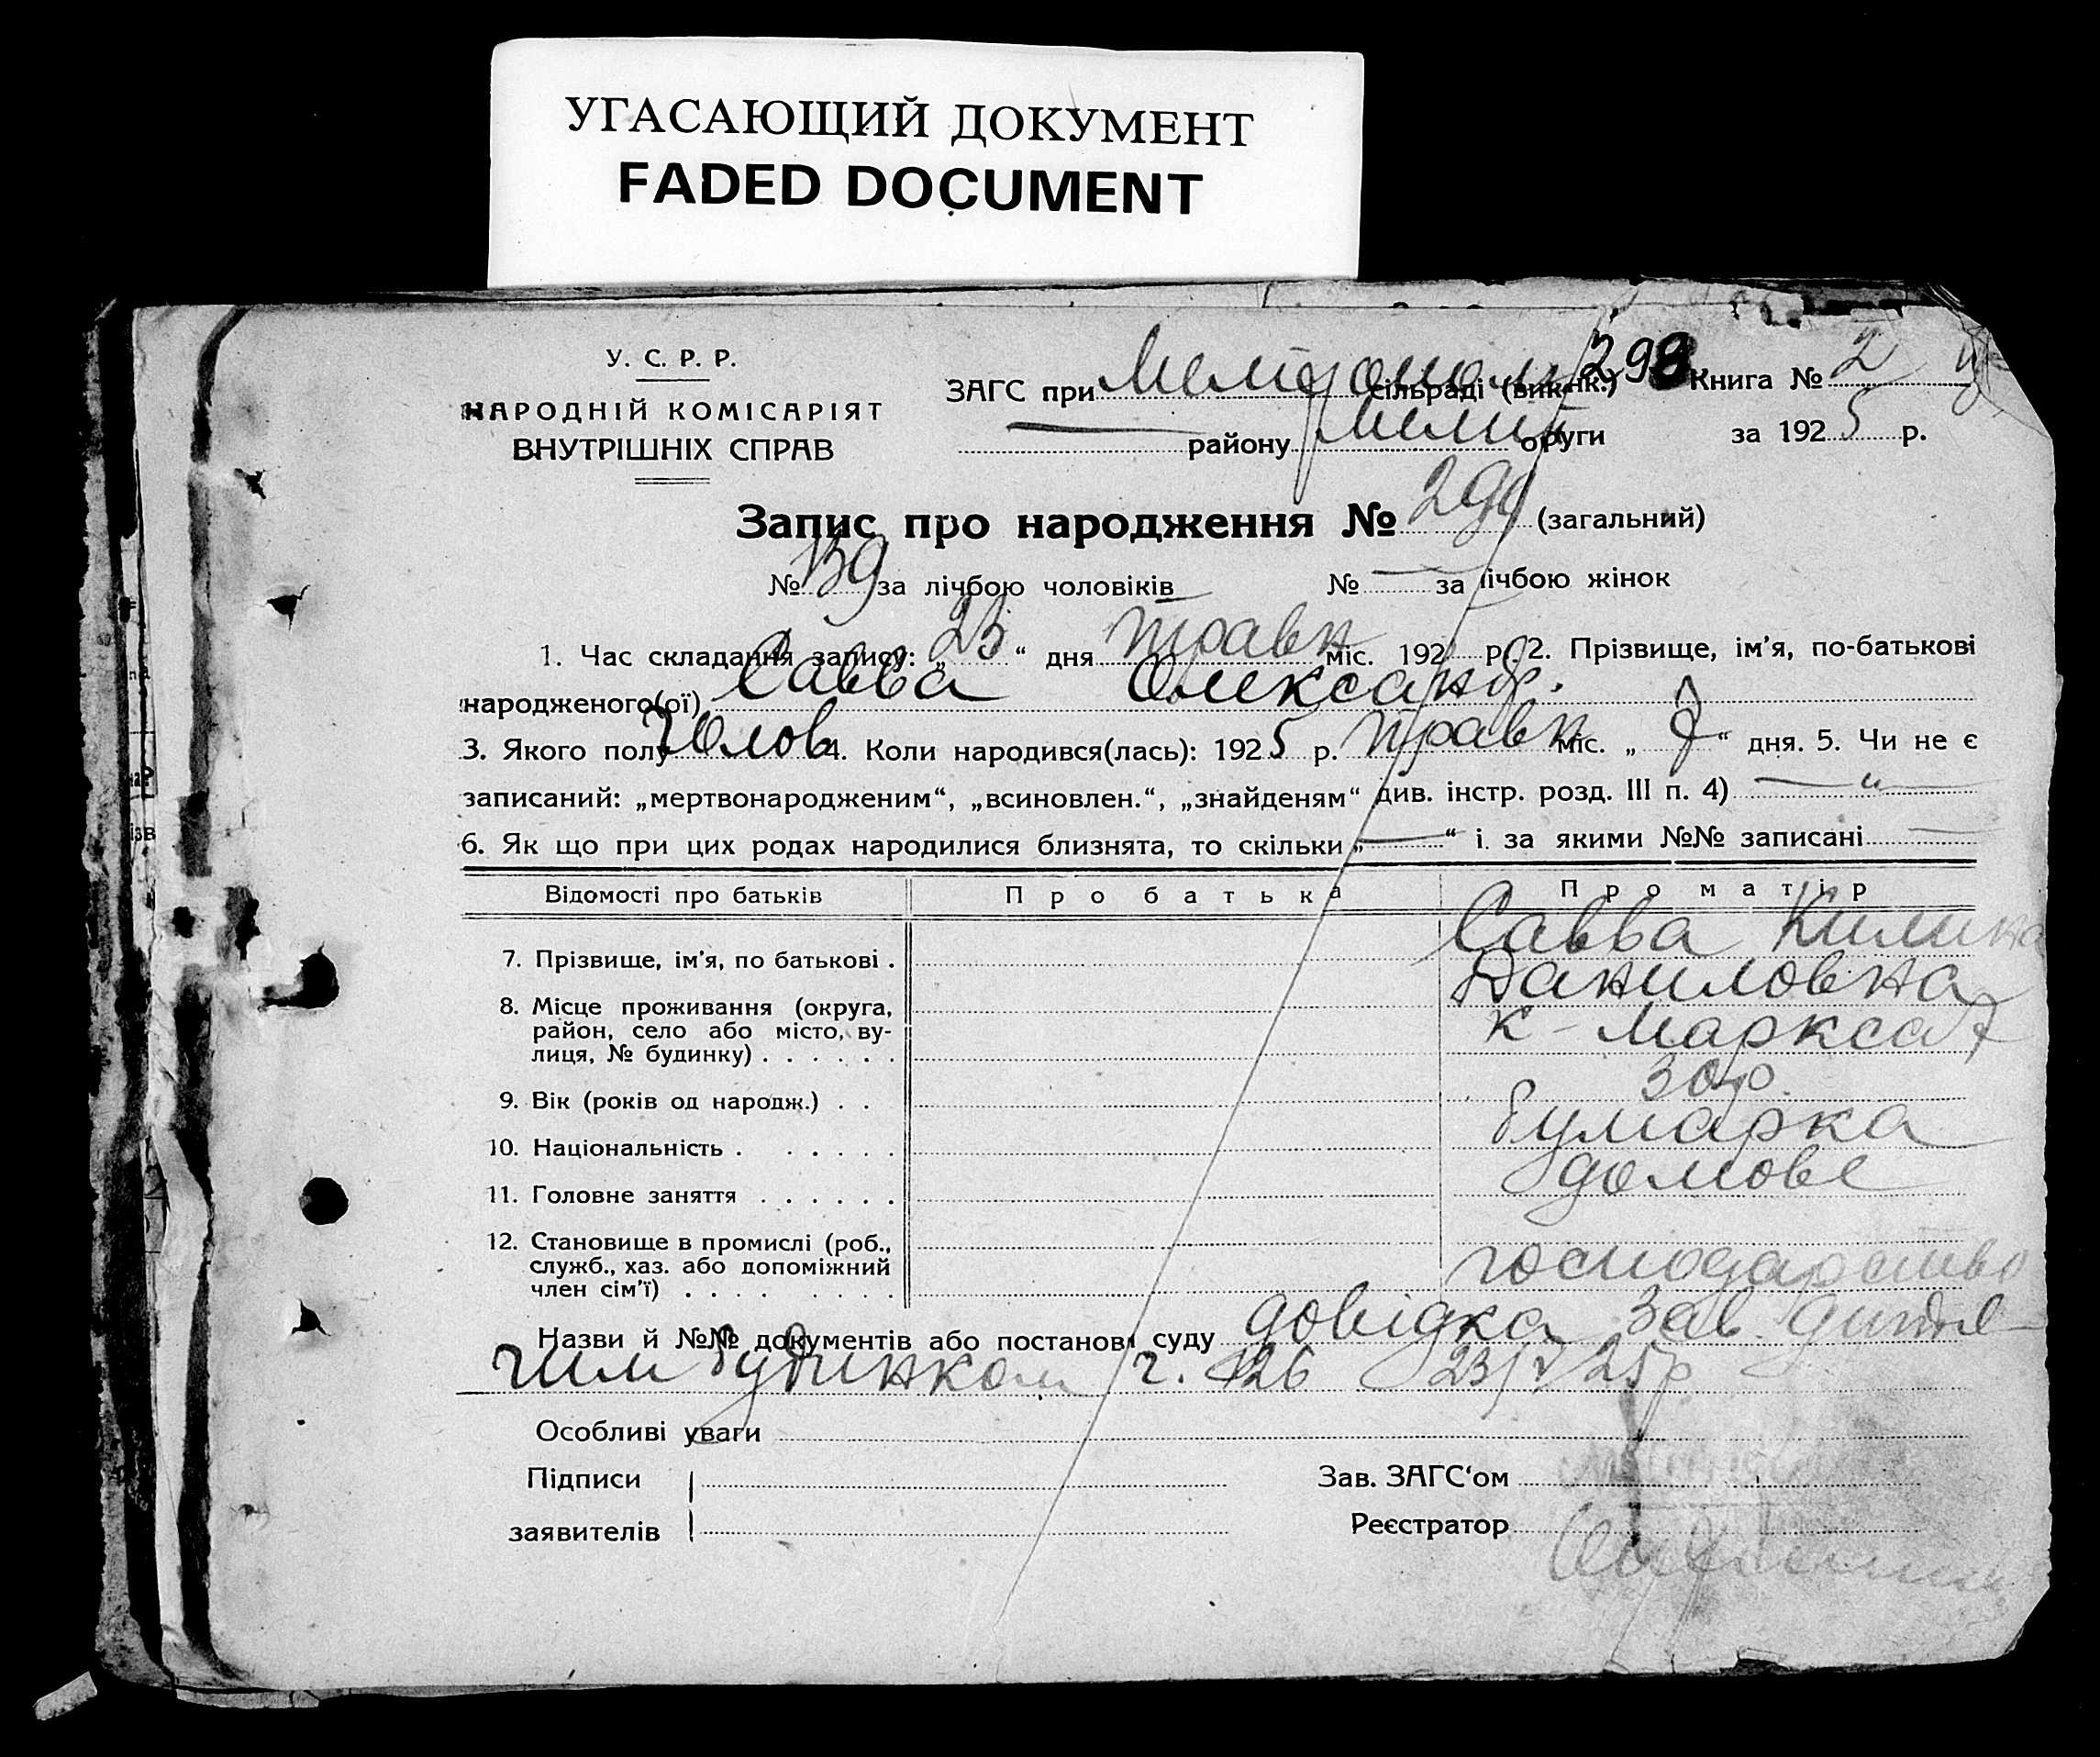 УГАСАЮЩИЙ ДОКУМЕНТ
FADED DOCUMENT
У. С. Р. Р.
НАРОДНІЙ КОМІСАРІЯТ
ВНУТРІШНІХ СПРАВ
298
ЗАГС при Мелітополь сільраді (викнк.) Книга № 2
району Мелит округи за 1925 р.
Запис про народження № 299 (загальний)
№ 159 за лічбою чоловіків № — за лічбою жінок
1. Час складання запису: „23“ дня травн міс. 192 р. 2. Прізвище, ім'я, по-батькові
народженого(ої) Савва Олександр.
3. Якого полу Чолов 4. Коли народився(лась): 1925 р. травн міс. „ “ дня. 5. Чи не є
записаний: „мертвонародженим“, „всиновлен.“, „знайденям“ див. інстр. розд. III п. 4) — „ —
6. Як що при цих родах народилися близнята, то скільки „—“ і за якими №№ записані —
Відомості про батьків Про батька Про матір
7. Прізвище, ім'я, по батькові . Савва Килина
Даниловна
8. Місце проживання (округа,
район, село або місто, ву-
лиця, № будинку) . . . . . . К - Маркса 7
9. Вік (років од народж.) . . 30 р.
10. Національність . . . . . . Румарка
11. Головне заняття . . . . . . домове
12. Становище в промислі (роб.,
служб., хаз. або допоміжний
член сім'ї) . . . . . . . . господарство
Назви й №№ документів або постанови суду довідка Зав. дитя-
чим будинком ч. 426 23/V 25 р
Особливі уваги
Підписи
заявителів
Зав. ЗАГС'ом
Реєстратор